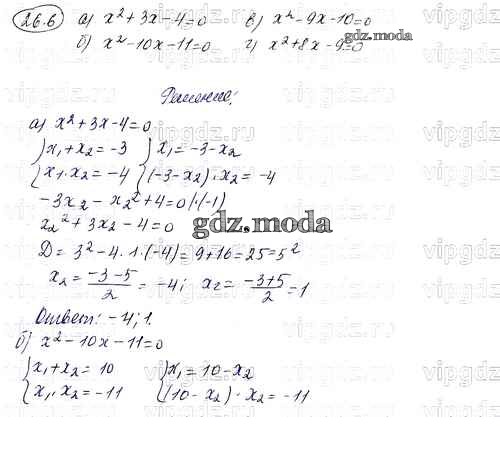 26.6) а) x² + 3x - 4 = 0 в) x² - 9x - 10 = 0
б) x² - 10x - 11 = 0 г) x² + 8x - 9 = 0
gdz.moda
Решение:
а) x² + 3x - 4 = 0
{ x₁ + x₂ = -3 { x₁ = -3 - x₂
{ x₁ · x₂ = -4 { (-3 - x₂) · x₂ = -4
-3x₂ - x₂² + 4 = 0 | · (-1)
x₂² + 3x₂ - 4 = 0
gdz.moda
D = 3² - 4 · 1 · (-4) = 9 + 16 = 25 = 5²
x₂ = (-3 - 5)/2 = -4; x₂ = (-3 + 5)/2 = 1
Ответ: -4; 1.
б) x² - 10x - 11 = 0
{ x₁ + x₂ = 10 { x₁ = 10 - x₂
{ x₁ · x₂ = -11 { (10 - x₂) · x₂ = -11
vipgdz.ru